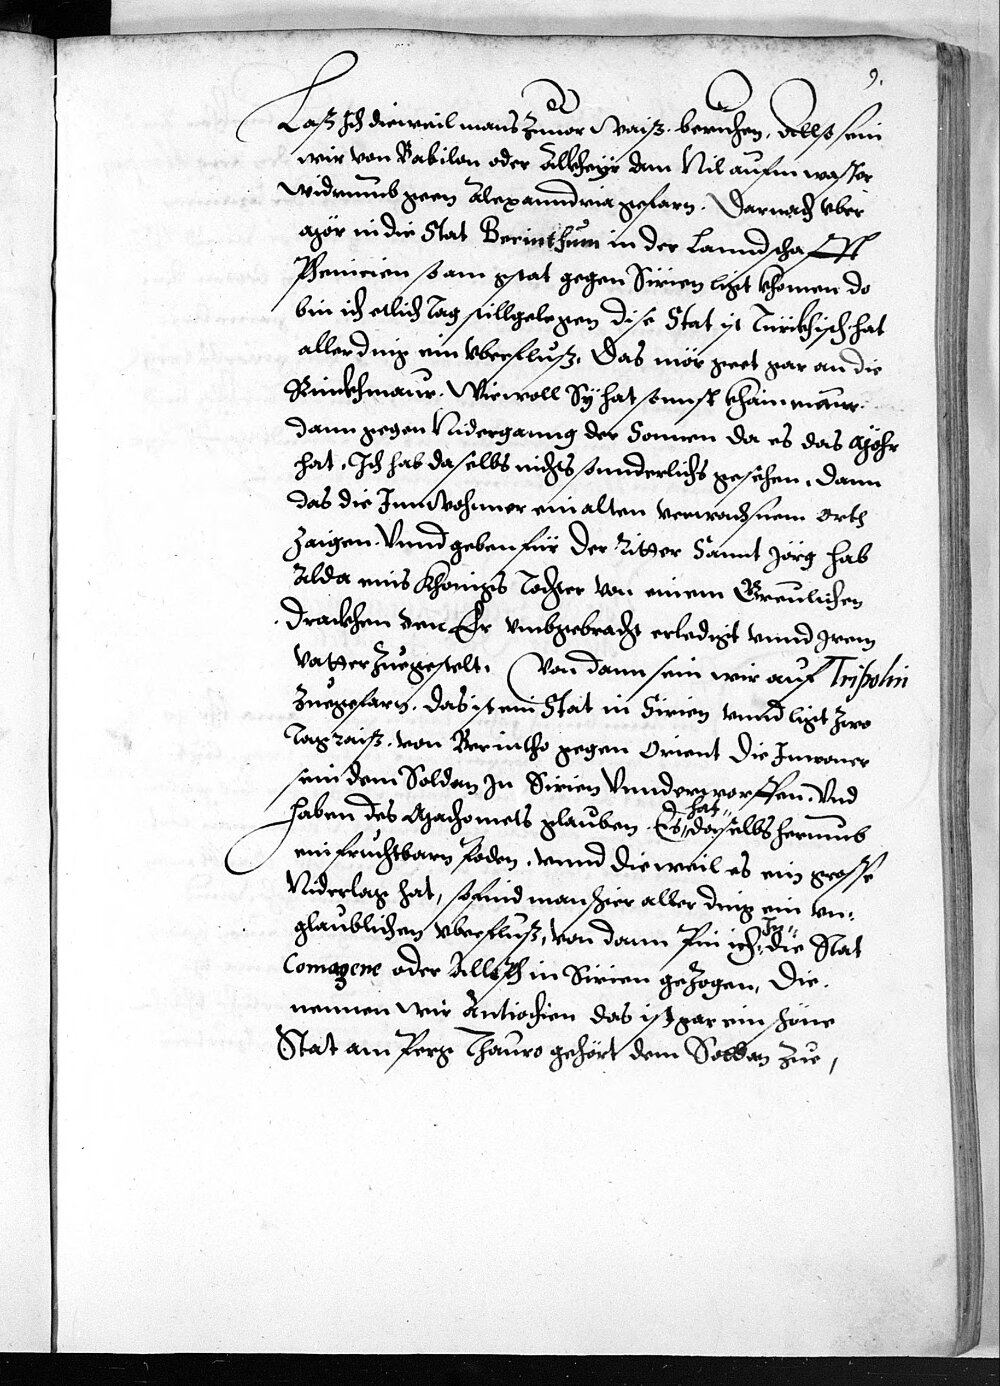 9.
Laß Ich dieweil mans zuuor Waiß beruehen. Allß sein
wir von Babilon oder Alkheyr dem Nil auf im wasser
widerumb geen Alexanndria gefarn. Darnach vber
Mör in die Stat Berinthum in der Lanndschafft
Phenicien so am gstat gegen Sirien ligt khomen do
bin ich etlich Tag stillgelegen dise Stat ist Türckhisch hat
aller ding ein vberfluß. Das mör geet gar an die
Rinckhmaur. Wiewoll Sy hat sonnst khain maur.
dann gegen Niderganng der Sonnen da es das Möhr
hat. Ich hab daselbs nichts sonnderlichs gesehen. Dann
das die Innwohnner ein alten verwachsnem orth
Zaigen. Vnnd geben für der Ritter Sannt Jörg hab
Alda eins Khönigs Tochter von einem Greulichen
Drackhen den Er vmbgebracht erledigt vnnd Irem
Vatter zuegestelt. Von dann sein wir auf Tripolin
zuegefarn. Das ist ein Stat in Sirien vnnd ligt zwo
Tagraiß. von Berintho gegen Orient die Inwoner
sein dem Soldan In Sirien Vnnderworffen. Vnd
haben des Machomets glauben. Es hat daselbs herumb
ein fruchtbarn boden. vnnd dieweil es ein grosse
Niderlag hat, so find man hier aller ding ein vn=
glaublichen vberfluß, von dann bin ich In die Stat
Comagene oder Alleph in Sirien gezogen, Die.
nennen wir Antiochien das ist gar ein schöne
Stat am berg Thauro gehört dem Soldan zue,